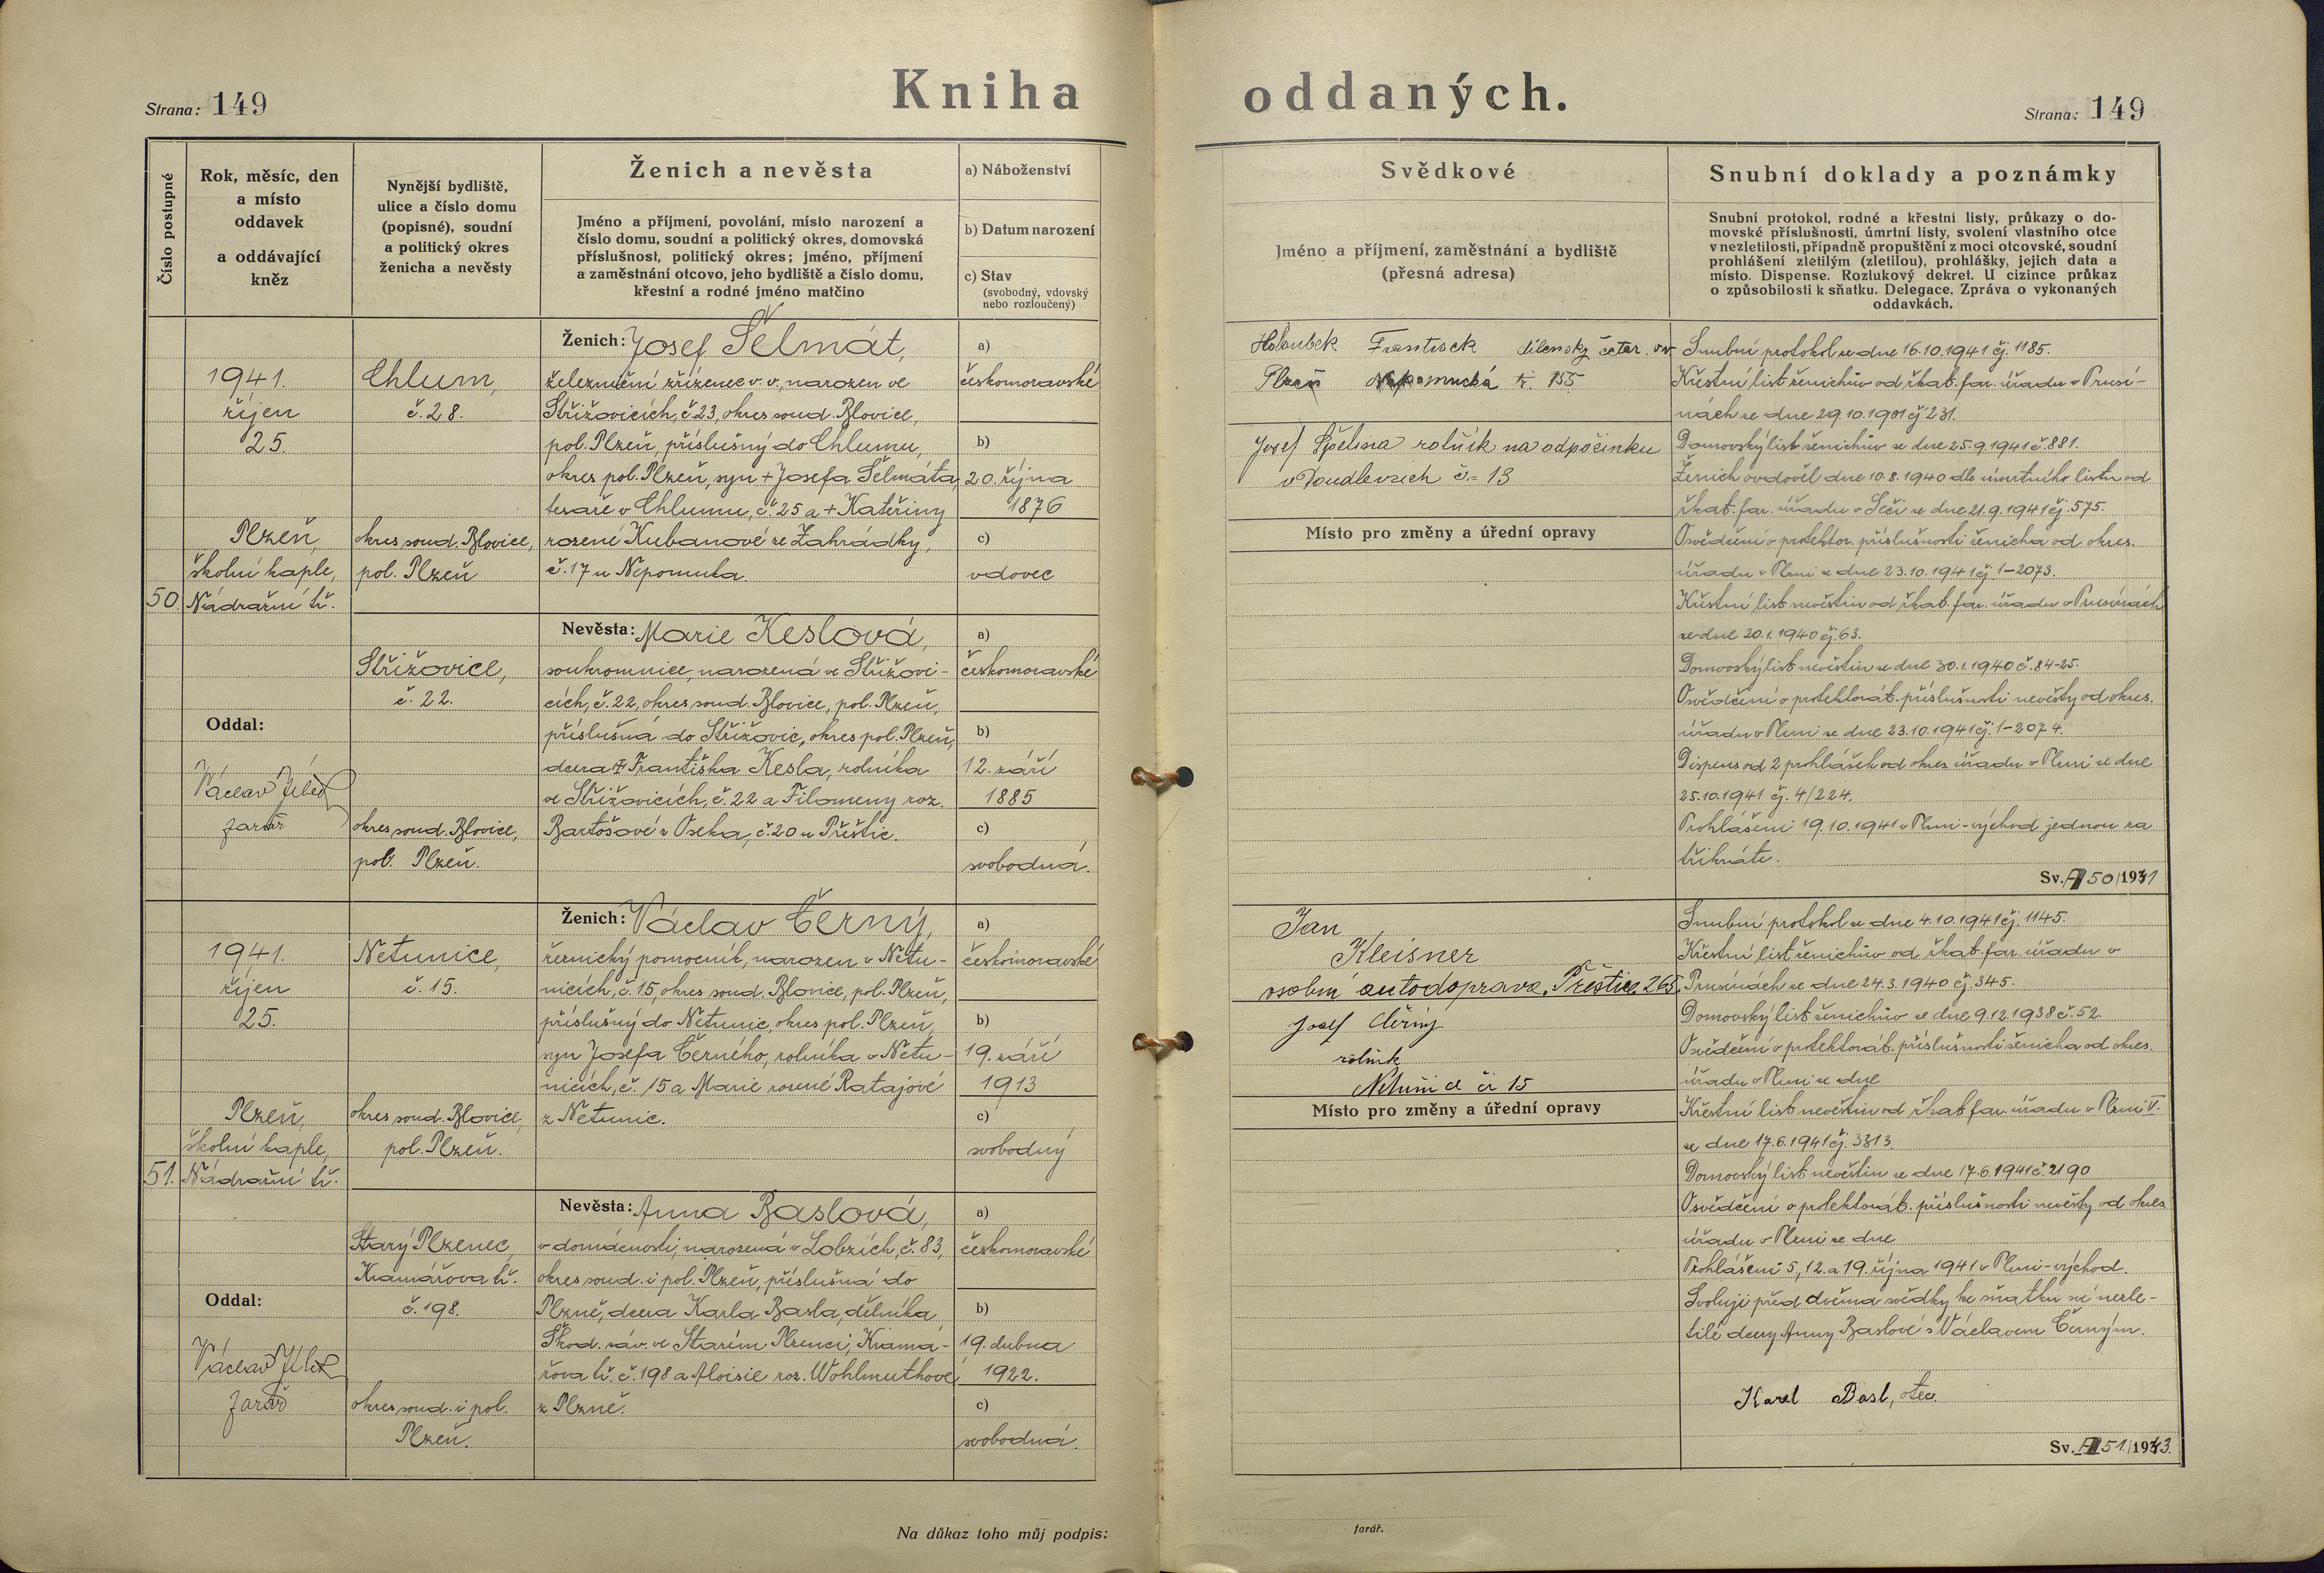 Kniha oddaných.
Strana: 149
Strana: 149
Číslo postupné
Rok, měsíc, den
a místo
oddavek
a oddávající
kněz
Nynější bydliště,
ulice a číslo domu
(popisné), soudní
a politický okres
ženicha a nevěsty
Ženich a nevěsta
Jméno a příjmení, povolání, místo narození a
číslo domu, soudní a politický okres, domovská
příslušnost, politický okres; jméno, příjmení
a zaměstnání otcovo, jeho bydliště a číslo domu,
křestní a rodné jméno matčino
a) Náboženství
b) Datum narození
c) Stav
(svobodný, vdovský
nebo rozloučený)
Svědkové
Jméno a příjmení, zaměstnání a bydliště
(přesná adresa)
Snubní doklady a poznámky
Snubní protokol, rodné a křestní listy, průkazy o do-
movské příslušnosti, úmrtní listy, svolení vlastního otce
v nezletilosti, případně propuštění z moci otcovské, soudní
prohlášení zletilým (zletilou), prohlášky, jejich data a
místo. Dispense. Rozlukový dekret. U cizince průkaz
o způsobilosti k sňatku. Delegace. Zpráva o vykonaných
oddavkách.
50.
1941.
říjen
25.
Plzeň,
školní kaple,
Nádražní tř.
Oddal:
Václav
farář
Chlum,
č. 28.
okres soud. Blovice,
pol. Plzeň
Střižovice,
č. 22.
okres soud. Blovice,
pol. Plzeň.
Ženich: Josef Šelmát,
železniční zřízenec v. v., narozen ve
Střižovicích, č. 23, okres soud. Blovice,
pol. Plzeň, příslušný do Chlumu,
okres pol. Plzeň, syn + Josefa Šelmáta,
tesaře v Chlumu, č. 25 a + Kateřiny
rozené Kubanové ze Zahrádky,
č. 17 u Nepomuka.
a)
českomoravské
b)
20. října
1876
c)
vdovec
Nevěsta: Marie Keslová,
soukromnice, narozená ve Střižovi-
cích, č. 22, okres soud. Blovice, pol. Plzeň,
příslušná do Střižovic, okres pol. Plzeň,
dcera + Františka Kesla, rolníka
ve Střižovicích, č. 22 a Filomeny roz.
Bartošové z Oseka, č. 20 u Přeštic.
a)
českomoravské
b)
12. září
1885
c)
svobodná.
Holoubek František dílenský četař. v.v.
Plzeň Nepomucká tř. 155
Josef Špelina rolník na odpočinku
v Doudlevcích č. 13
Místo pro změny a úřední opravy
Snubní protokol ze dne 16.10.1941 čj. 1185.
Křestní list ženichův od řkat. far. úřadu v Prusi-
nách ze dne 29.10.1901 čj 231.
Domovský list ženichův ze dne 25.9.1941 č. 881.
Ženich ovdověl dne 10.8.1940 dle úmrtního listu od
řkat. far. úřadu v Seči ze dne 21.9.1941 čj. 575.
Osvědčení o protektor. příslušnosti ženicha od okres.
úřadu v Plzni ze dne 23.10.1941 čj. 1-2073.
Křestní list nevěstin od řkat. far. úřadu v Prusinách
ze dne 20.1.1940 čj. 63.
Domovský list nevěstin ze dne 30.1.1940 č. 84-25.
Osvědčení o protektorát. příslušnosti nevěsty od okres.
úřadu v Plzni ze dne 23.10.1941 čj. 1-2074.
Dispens od 2 prohlášek od okres. úřadu v Plzni ze dne
25.10.1941 čj. 4/224.
Prohlášeni 19.10.1941 v Plzni-východ jednou za
třikráte.
Sv. 50/1941
51.
1941.
říjen
25.
Plzeň,
školní kaple,
Nádražní tř.
Oddal:
Václav
farář
Netunice,
č. 15.
okres soud. Blovice,
pol. Plzeň.
Starý Plzenec,
Kramářova tř.
č. 198.
okres soud. i pol.
Plzeň.
Ženich: Václav Černý,
řeznický pomocník, narozen v Netu-
nicích, č. 15, okres soud. Blovice, pol. Plzeň,
příslušný do Netunic, okres pol. Plzeň,
syn Josefa Černého, rolníka v Netu-
nicích, č. 15 a Marie rozené Ratajové
z Netunic.
a)
českomoravské
b)
19. září
1913
c)
svobodný
Nevěsta: Anna Baslová,
v domácnosti, narozená v Lobzích, č. 83,
okres soud. i pol. Plzeň, příslušná do
Plzně, dcera Karla Basla, dělníka
Škod. záv. ve Starém Plzenci, Kramá-
řova tř. č. 198 a Aloisie roz. Wohlmuthové
z Plzně.
a)
českomoravské
b)
19. dubna
1922.
c)
svobodná.
Jan
Kleisner
osobní autodoprava, Přeštice 265
Josef Černý
rolník
Netunice čí 15
Místo pro změny a úřední opravy
Snubní protokol ze dne 4.10.1941 čj. 1145.
Křestní list ženichův od řkat. far. úřadu v
Prusinách ze dne 24.3.1940 čj. 345.
Domovský list ženichův ze dne 9.12.1938 č. 52.
Osvědčení o protektorát. příslušnosti ženicha od okres.
úřadu v Plzni ze dne
Křestní list nevěstin od řkat. far. úřadu v Plzni V.
ze dne 17.6.1941 čj. 3313.
Domovský list nevěstin ze dne 17.6.1941 č. 2190
Osvědčení o protektorát. příslušnosti nevěsty od okres.
úřadu v Plzni ze dne
Prohlášeni 5, 12. a 19. října 1941 v Plzni-východ.
Svoluji před dvěma svědky ke sňatku své nezle-
tilé dcery Anny Baslové s Václavem Černým.
Karel Basl, otec.
Sv. 51./1943.
Na důkaz toho můj podpis:
farář.